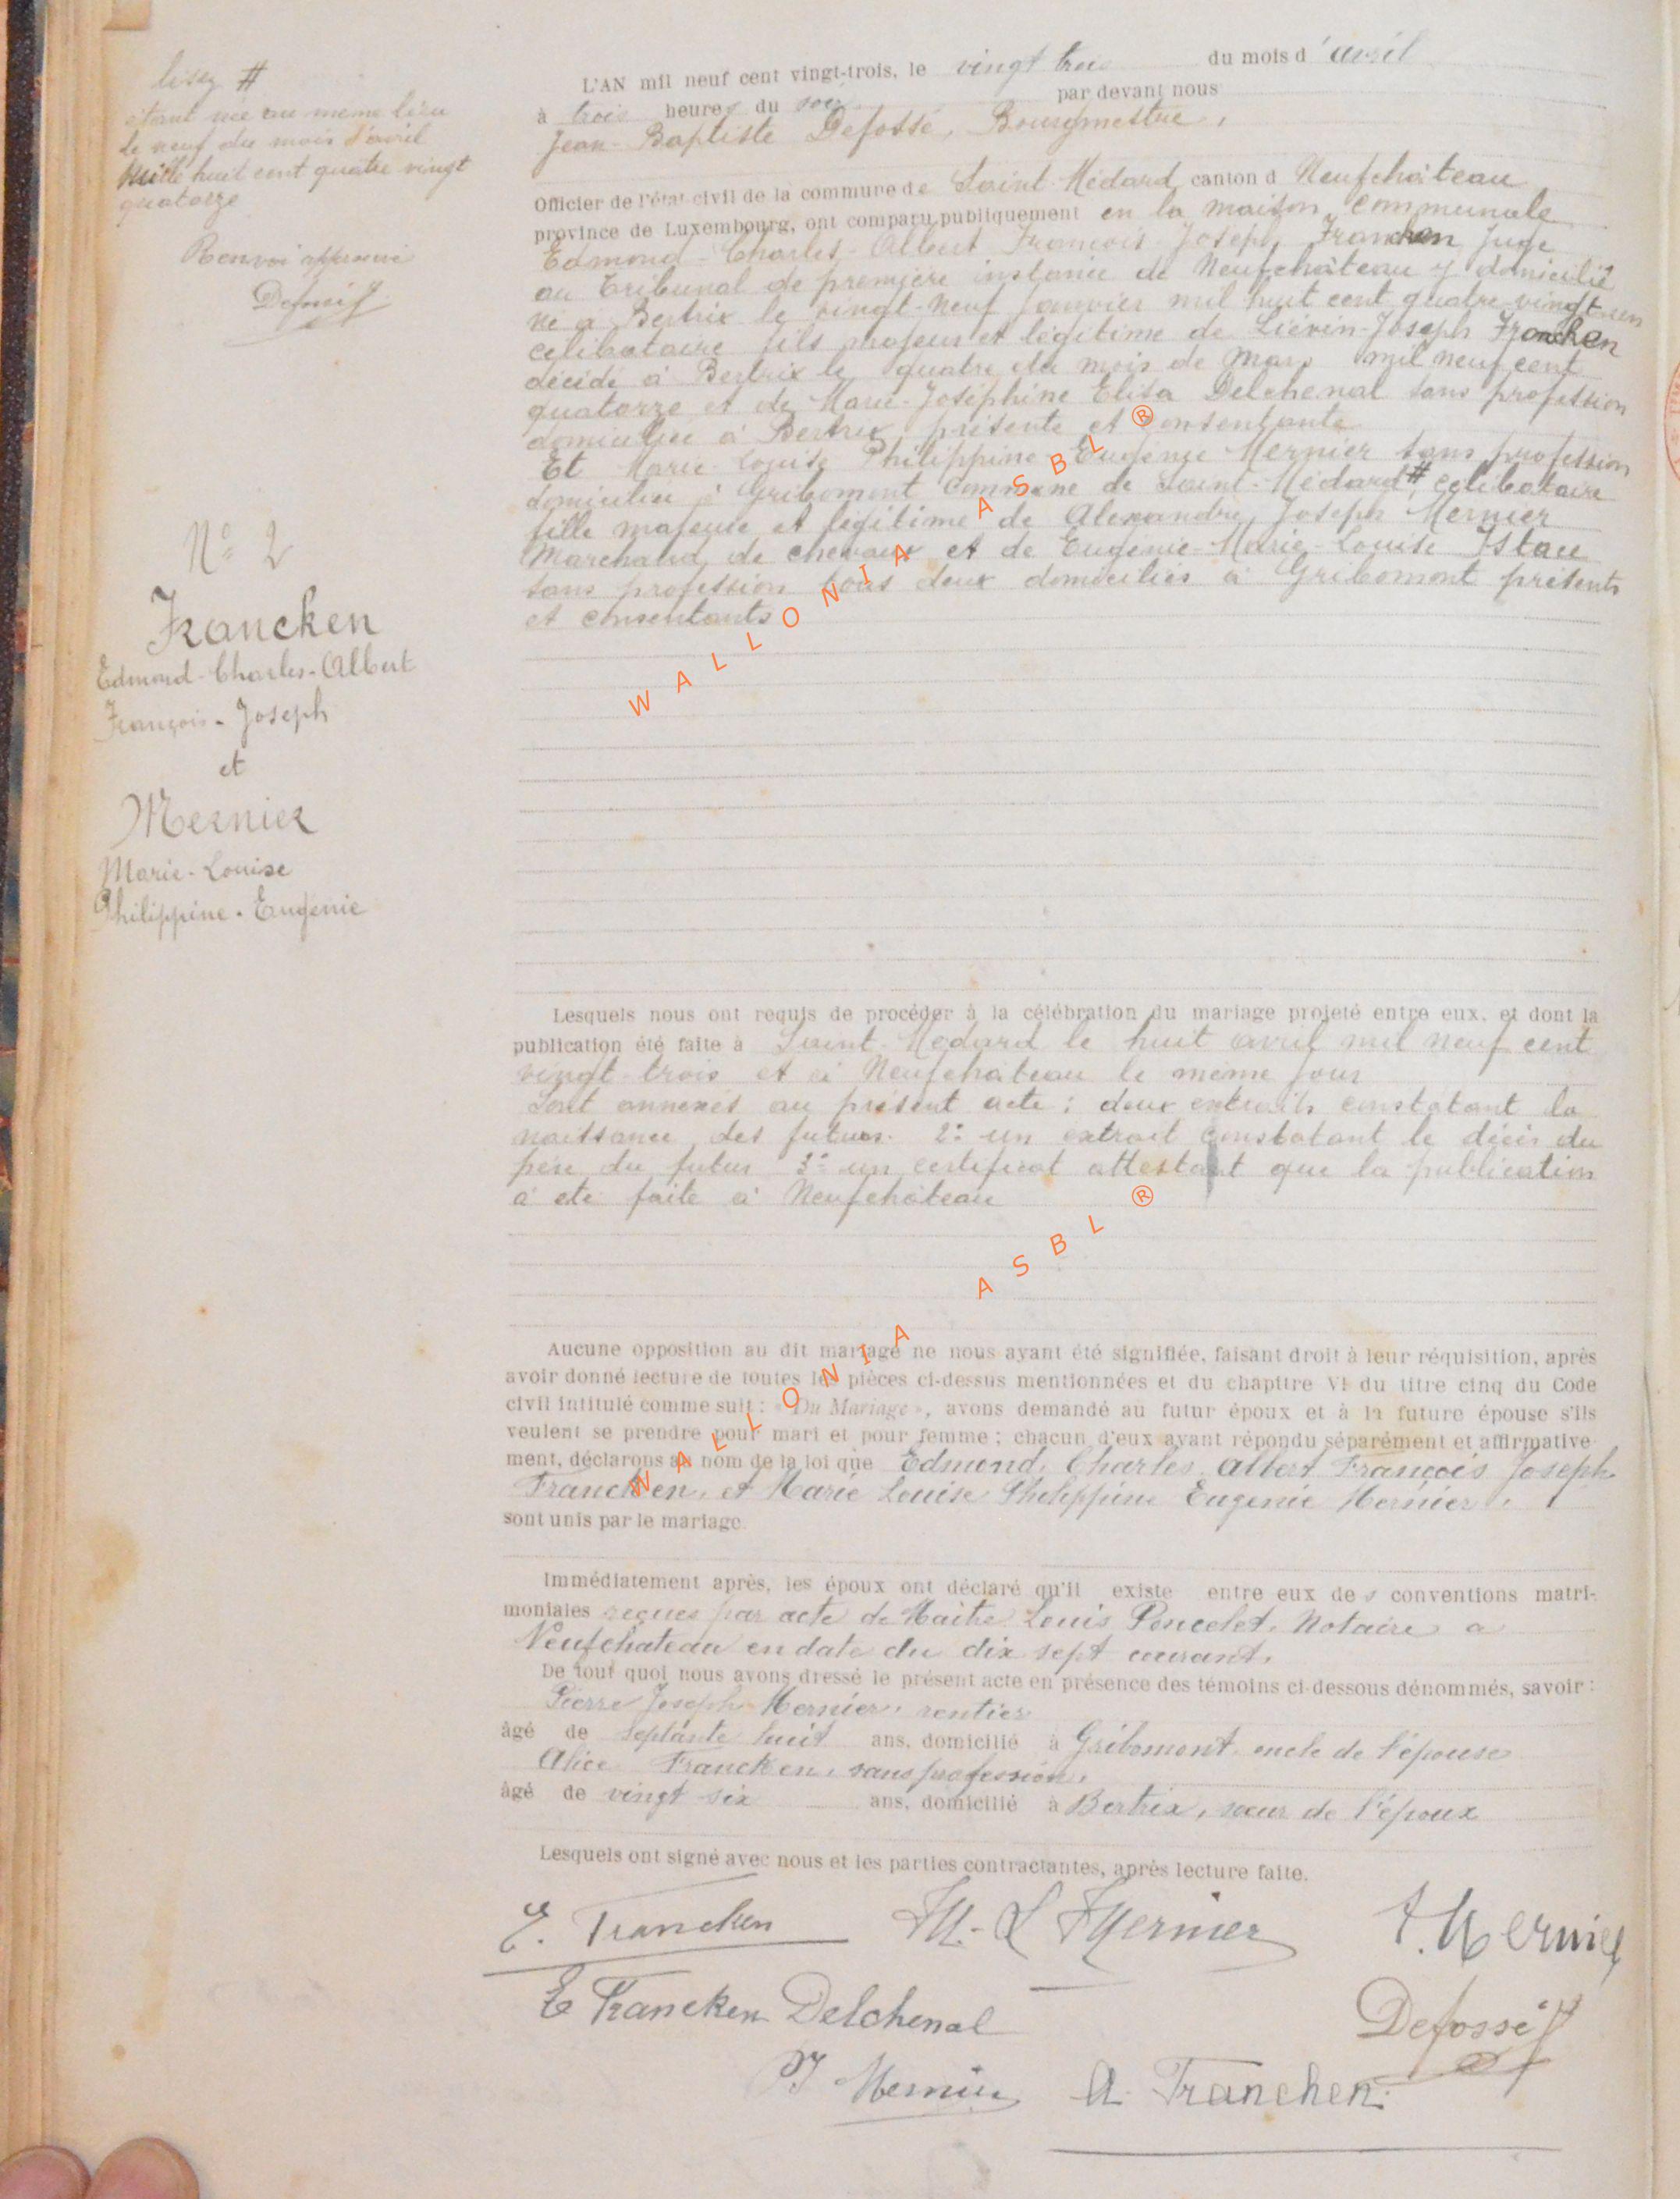 lisez #
étant née au même lieu
le neuf du mois d'avril
mille huit cent quatre vingt
quatorze
Renvoi approuvé
Defossé
N° 2
Francken
Edmond-Charles-Albert
François-Joseph
et
Mernier
Marie-Louise
Philippine-Eugénie
L'AN mil neuf cent vingt-trois, le vingt trois du mois d'avril
à trois heures du soir par devant nous
Jean-Baptiste Defossé, Bourgmestre,
Officier de l'état civil de la commune de Saint-Médard, canton d Neufchâteau
province de Luxembourg, ont comparu publiquement en la maison communale
Edmond-Charles-Albert François-Joseph Francken Juge
au Tribunal de première instance de Neufchâteau y domicilié
né à Bertrix le vingt-neuf janvier mil huit cent quatre-vingt-un
célibataire fils majeur et légitime de Liévin-Joseph Francken
décédé à Bertrix le quatre du mois de Mars mil neuf cent
quatorze et de Marie-Joséphine Elisa Delchenal sans profession
domiciliée à Bertrix, présente et consentante
Et Marie Louise Philippine Eugénie Mernier sans profession
domiciliée à Gribomont commune de Saint-Médard #, célibataire
fille majeure et légitime de Alexandre Joseph Mernier
Marchand de chevaux et de Eugénie-Marie-Louise Istace
sans profession tous deux domiciliés à Gribomont présents
et consentants
Lesquels nous ont requis de procéder à la célébration du mariage projeté entre eux, et dont la
publication été faite à Saint-Médard le huit avril mil neuf cent
vingt-trois et à Neufchâteau le même jour
Sont annexés au présent acte : deux extraits constatant la
naissance des futurs. 2° un extrait constatant le décès du
père du futur 3° un certificat attestant que la publication
a été faite à Neufchâteau
Aucune opposition au dit mariage ne nous ayant été signifiée, faisant droit à leur réquisition, après
avoir donné lecture de toutes les pièces ci-dessus mentionnées et du chapitre VI du titre cinq du Code
civil intitulé comme suit : « Du Mariage », avons demandé au futur époux et à la future épouse s'ils
veulent se prendre pour mari et pour femme ; chacun d'eux ayant répondu séparément et affirmative-
ment, déclarons au nom de la loi que Edmond, Charles, Albert François Joseph
Francken, et Marie Louise Philippine Eugénie Mernier,
sont unis par le mariage.
Immédiatement après, les époux ont déclaré qu'il existe entre eux des conventions matri-
moniales reçues par acte de Maître Louis Poncelet, Notaire a
Neufchateau en date du dix sept courant.
De tout quoi nous avons dressé le présent acte en présence des témoins ci-dessous dénommés, savoir :
Pierre Joseph Mernier, rentier
âgé de septante huit ans, domicilié à Gribomont, oncle de l'épouse
Alice Francken, sans profession,
âgé de vingt six ans, domicilié à Bertrix, soeur de l'époux
Lesquels ont signé avec nous et les parties contractantes, après lecture faite.
E. Francken M.-L Mernier A. Mernier
E Francken Delchenal Defossé
PJ Mernier A. Francken
WALLONIA ASBL ®
WALLONIA ASBL ®